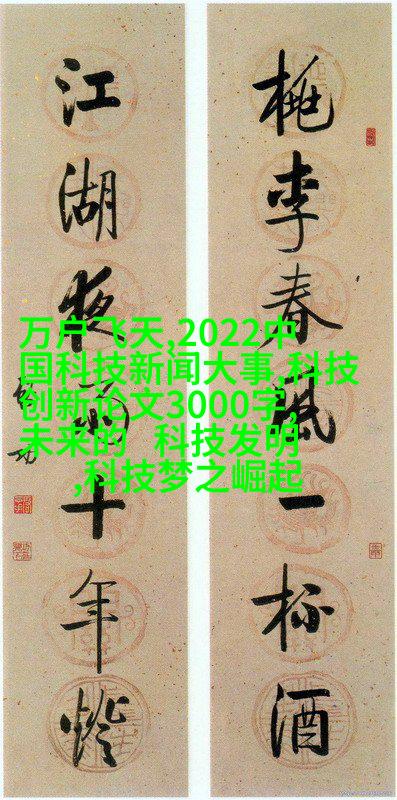 桃李春風一杯酒
江湖夜雨十年燈
启功
万户飞天,2022中
国科技新闻大事,科技
创新论文3000字,
未来的 科技发明
,科技梦之崛起